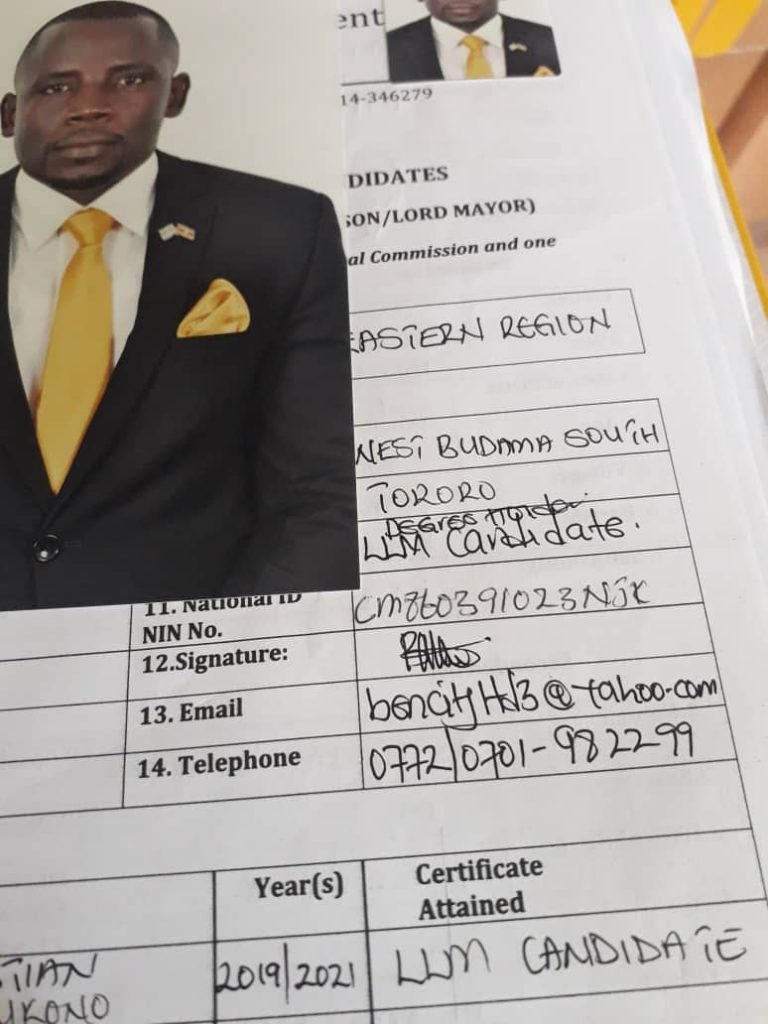 ent
14-346279
DIDATES
SON/LORD MAYOR)
al Commission and one
EASTERN REGION
WEST BUDAMA SOUTH
TORORO
DEGREE Holder
LLM Candidate.
11. National ID
NIN No.
CM860391023NJK
12.Signature:
13. Email
@yahoo.com
14. Telephone
0772/0701-982299
Year(s)
Certificate
Attained
STIAN
UKONO
2019/2021
LLM CANDIDATE